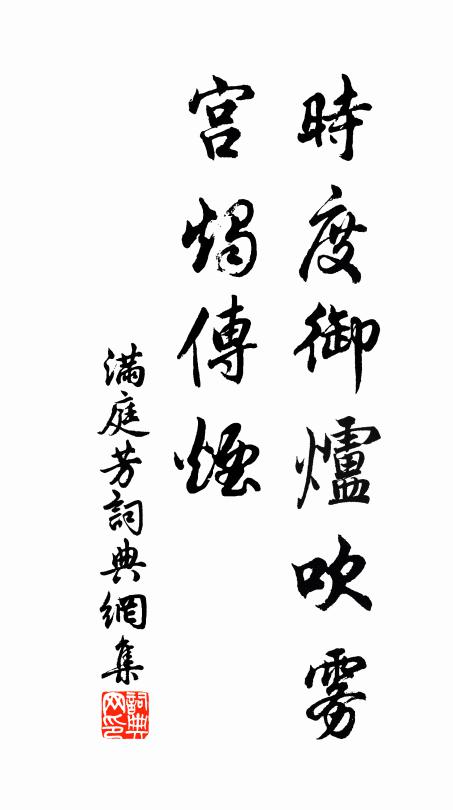 時度御爐吹雾
宫燭傳煙
滿庭芳詞典網集
詞典网印